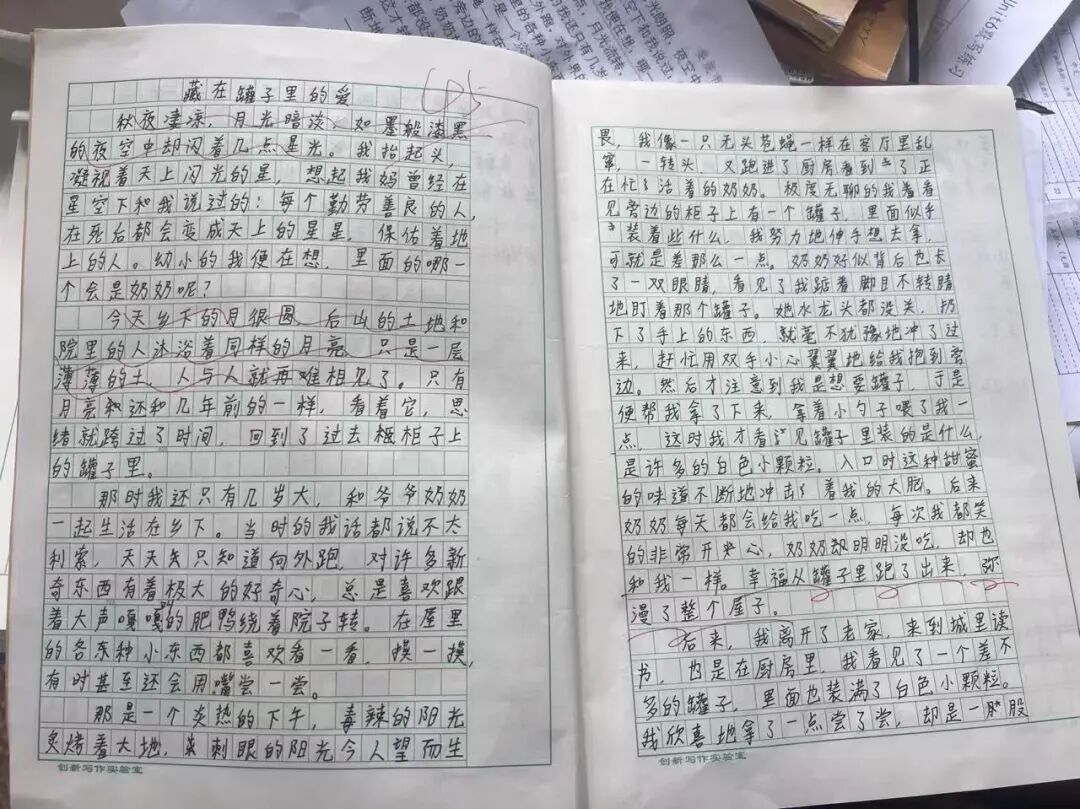 藏在罐子里的爱
秋夜凄凉，月光暗淡，如墨般漆黑
的夜空中却闪着几点星光。我抬起头，
凝视着天上闪光的星，想起我妈曾经在
星空下和我说过的：每个勤劳善良的人，
在死后都会变成天上的星星，保佑着地
上的人。幼小的我便在想，里面的哪一
个会是奶奶呢？
今天乡下的月很圆，后山的土地和
院里的人沐浴着同样的月亮，只是一层
薄薄的土，人与人就再难相见了。只有
月亮还和几年前的一样，看着它，思
绪就跨过了时间，回到了过去柜子上
的罐子里。
那时我还只有几岁大，和爷爷奶奶
一起生活在乡下。当时的我话都说不大
利索，天天只知道向外跑，对许多新
奇东西有着极大的好奇心，总是喜欢跟
着大声嘎嘎的肥鸭绕着院子转。在屋里
的各种小东西都喜欢看一看，摸一摸，
有时甚至还会用嘴尝一尝。
那是一个炎热的下午，毒辣的阳光
炙烤着大地，刺眼的阳光令人望而生
创新写作实验室
畏，我像一只无头苍蝇一样在客厅里乱
窜，一转头，又跑进了厨房看到了正
在忙活着的奶奶。极度无聊的我看看
见旁边的柜子上有一个罐子，里面似乎
装着些什么，我努力地伸手想去拿，
可就是差那么一点。奶奶好似背后也长
了一双眼睛，看见了我踮着脚目不转睛
地盯着那个罐子。她水龙头都没关，扔
下了手上的东西，就毫不犹豫地冲了过
来，赶忙用双手小心翼翼地给我抱到旁
边。然后才注意到我是想要罐子，于是
便帮我拿了下来，拿着小勺子喂了我一
点，这时我才看见罐子里装的是什么，
是许多的白色小颗粒。入口时这种甜蜜
的味道不断地冲击着我的大脑。后来
奶奶每天都会给我吃一点，每次我都笑
的非常开心，奶奶明明没吃，却也
和我一样。幸福从罐子里跑了出来，弥
漫了整个屋子。
后来，我离开了老家，来到城里读
书，也是在厨房里，我看见了一个差不
多的罐子，里面也装满了白色小颗粒。
我欣喜地拿了一点尝了尝，却是一股
创新写作实验室